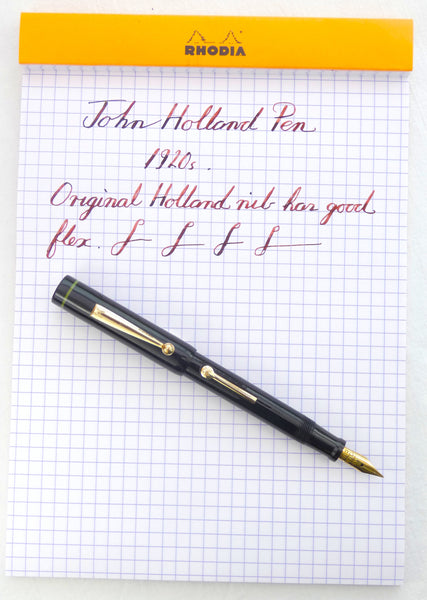 RHODIA
John Holland Pen
1920s.
Original Holland nib has good
flex. f f f f